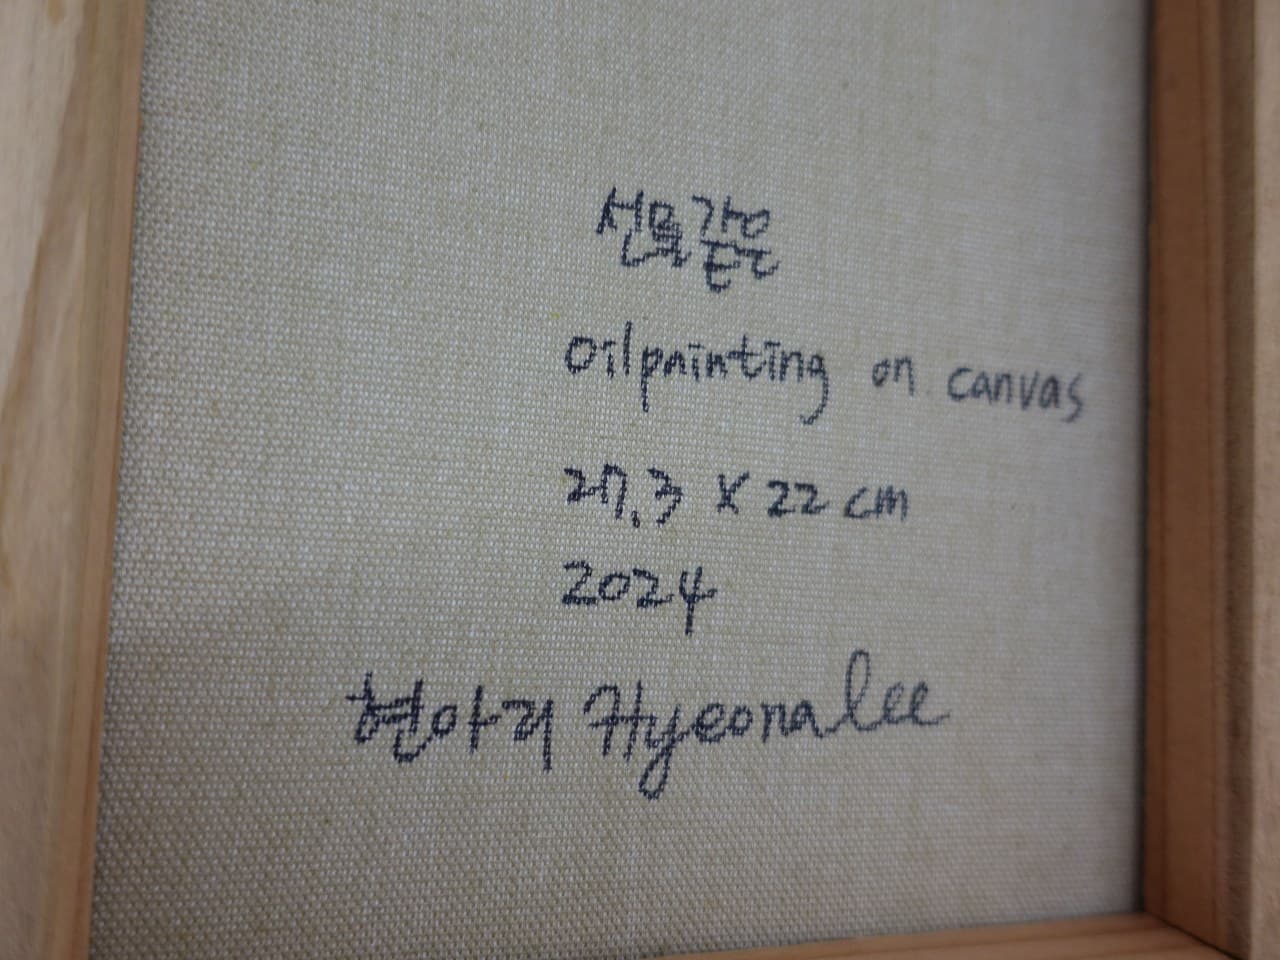 선물같은
Oilpainting on canvas
27.3 X 22 cm
2024
현아리 Hyeonalee